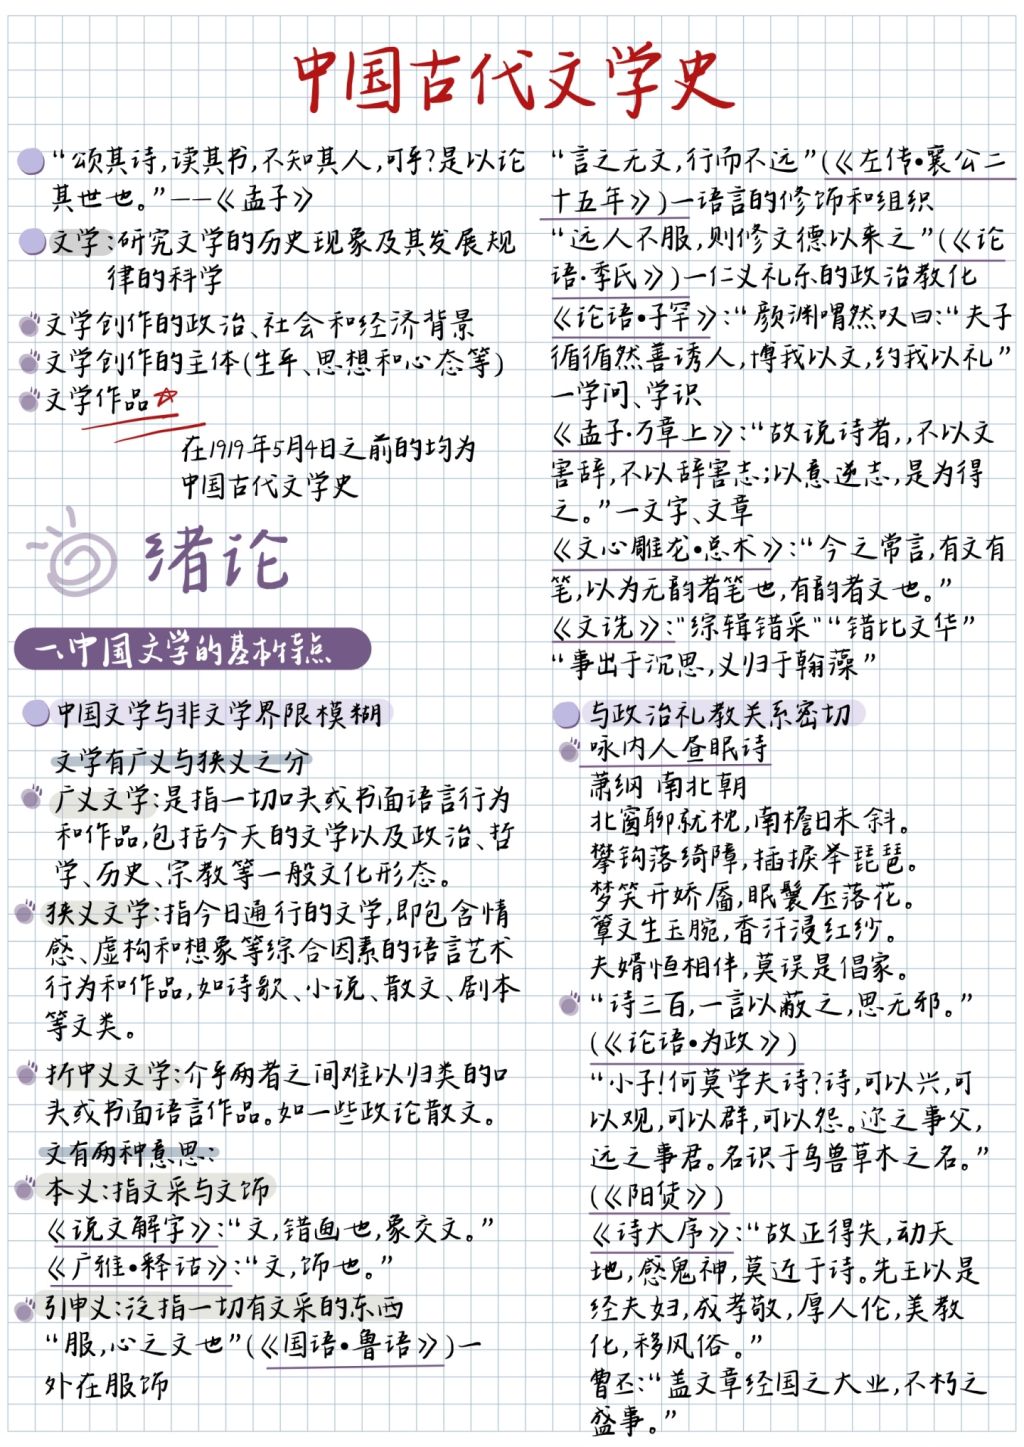 中国古代文学史
“颂其诗,读其书,不知其人,可乎?是以论
其世也。”——《孟子》
文学:研究文学的历史现象及其发展规
律的科学
文学创作的政治、社会和经济背景
文学创作的主体(生平、思想和心态等)
文学作品
在1919年5月4日之前的均为
中国古代文学史
绪论
一、中国文学的基本特点
中国文学与非文学界限模糊
文学有广义与狭义之分
广义文学:是指一切口头或书面语言行为
和作品,包括今天的文学以及政治、哲
学、历史、宗教等一般文化形态。
狭义文学:指今日通行的文学,即包含情
感、虚构和想象等综合因素的语言艺术
行为和作品,如诗歌、小说、散文、剧本
等文类。
折中义文学:介乎两者之间难以归类的口
头或书面语言作品。如一些政论散文。
文有两种意思:
本义:指文采与文饰
《说文解字》:“文,错画也,象交文。”
《广雅·释诂》:“文,饰也。”
引申义:泛指一切有文采的东西
“服,心之文也”(《国语·鲁语》)—
外在服饰
“言之无文,行而不远”(《左传·襄公二
十五年》)—语言的修饰和组织
“远人不服,则修文德以来之”(《论
语·季氏》)—仁义礼乐的政治教化
《论语·子罕》:“颜渊喟然叹曰:“夫子
循循然善诱人,博我以文,约我以礼”
—学问、学识
《孟子·万章上》:“故说诗者,,不以文
害辞,不以辞害志;以意逆志,是为得
之。”—文字、文章
《文心雕龙·总术》:“今之常言,有文有
笔,以为无韵者笔也,有韵者文也。”
《文选》:“综辑错采”“错比文华”
“事出于沉思,义归于翰藻”
与政治礼教关系密切
咏内人昼眠诗
萧纲 南北朝
北窗聊就枕,南檐日未斜。
攀钩落绮障,插捩举琵琶。
梦笑开娇靥,眠鬟压落花。
簟文生玉腕,香汗浸红纱。
夫婿恒相伴,莫误是倡家。
“诗三百,一言以蔽之,思无邪。”
(《论语·为政》)
“小子!何莫学夫诗?诗,可以兴,可
以观,可以群,可以怨。迩之事父,
远之事君。名识于鸟兽草木之名。”
(《阳货》)
《诗大序》:“故正得失,动天
地,感鬼神,莫近于诗。先王以是
经夫妇,成孝敬,厚人伦,美教
化,移风俗。”
曹丕:“盖文章经国之大业,不朽之
盛事。”